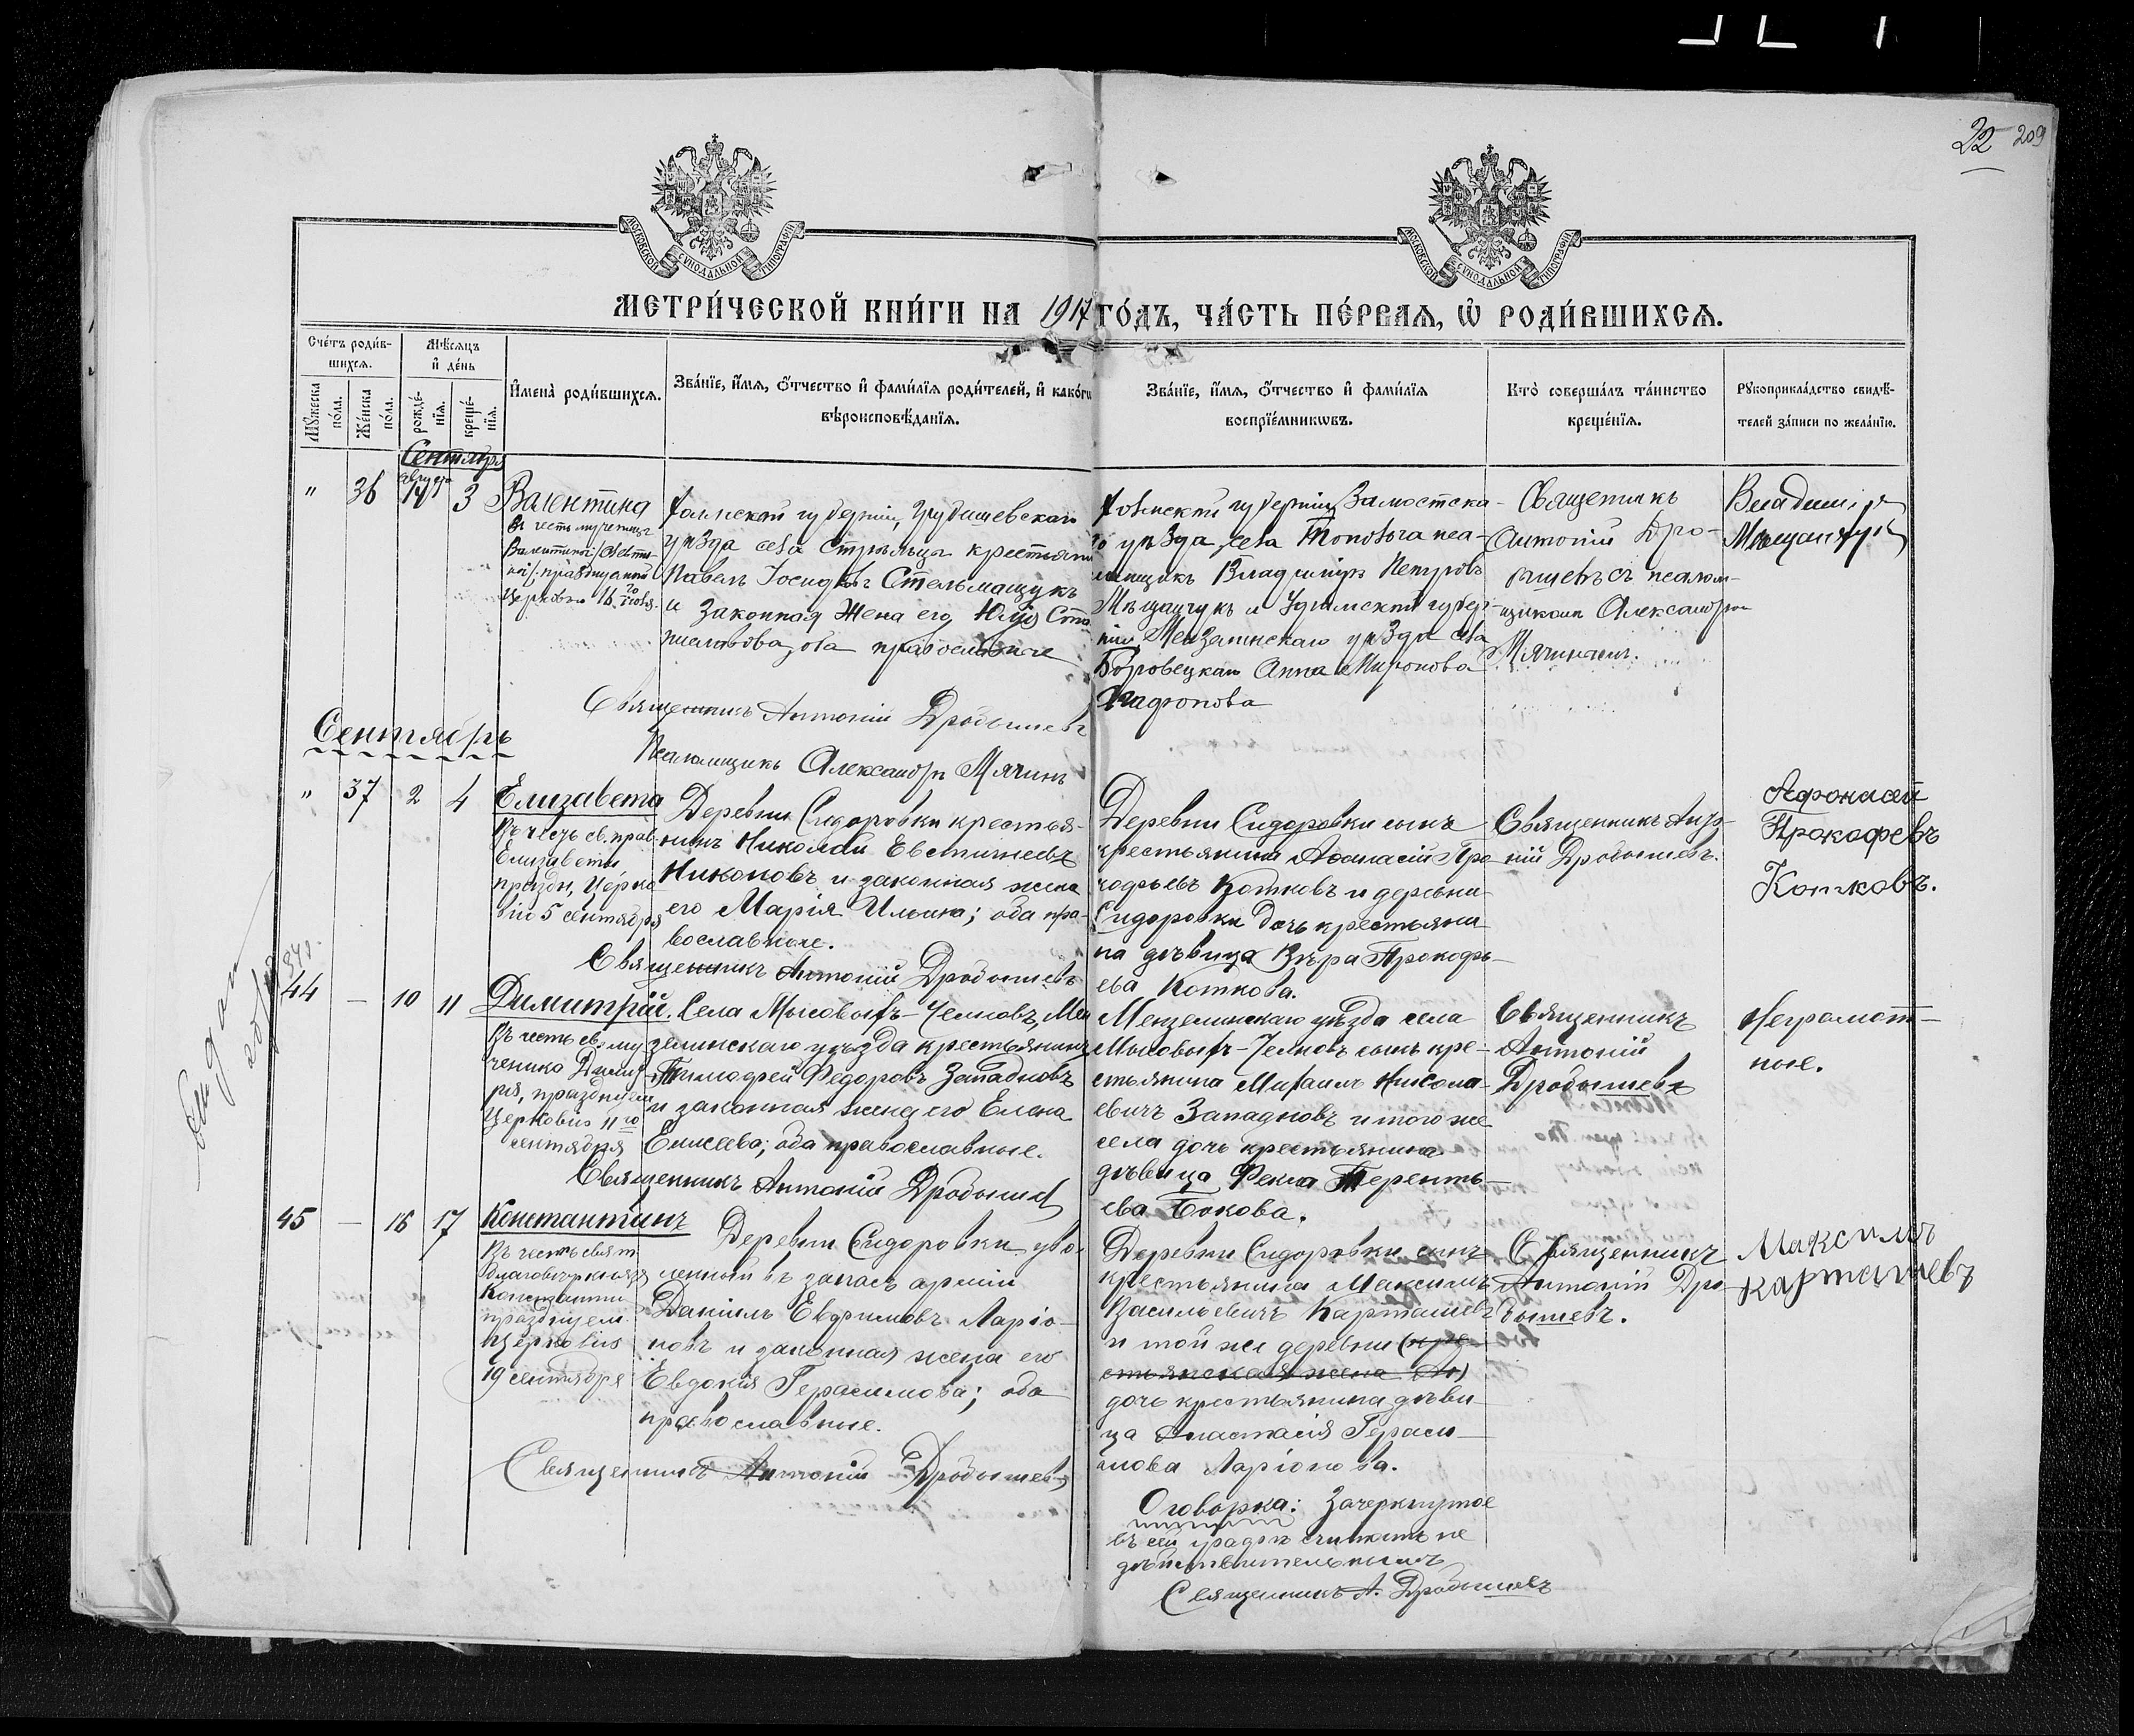 22 209
МОСКОВСКОЙ СѴНОДАЛЬНОЙ ТИПОГРАФІИ
МОСКОВСКОЙ СѴНОДАЛЬНОЙ ТИПОГРАФІИ
МЕТРИ́ЧЕСКОЙ КНИ́ГИ НА 1917 ГО́ДЪ, ЧА́СТЬ ПЕ́РВАЯ, Ѡ҆ РОДИ́ВШИХСЯ.
Сче́тъ роди́в-
шихся.
Мѣ́сяцъ
и҆ де́нь
Мꙋ́жеска
по́ла.
Же́нска
по́ла.
рожде́-
нїя.
креще́-
нїя.
И҆мена̀ роди́вшихся.
Зва́нїе, и҆́мя, ѻ҆́тчество и҆ фами́лїя роди́телей, и҆ како́гѡ
вѣроисповѣ́данїя.
Зва́нїе, и҆́мя, ѻ҆́тчество и҆ фами́лїя
воспрїе́мникѡвъ.
Кто̀ соверша́лъ та́инство
креще́нїя.
Рꙋкоприкла́дство свидѣ́-
телей за́писи по жела́нїю.
Сентября
"
36
августа
3
Валентина
въ честь мученицы
празднуемой
Церковью 16
Холмской губерніи, Грубешевскаго
уѣзда села Стрѣльцы крестьянинъ
Павелъ Іосифовъ Стельмащукъ
и законная жена его Юлія
оба православные
Холмской губерніи Замостска-
го уѣзда, села пса-
ломщикъ Владиміръ Петровъ
Мѣщанчукъ и Уфимской губер-
ніи, Мензелинскаго уѣзда села
Боровецкаго Анна Миронова
Агафонова
Священникъ
Антоній Дро-
бышевъ съ псалом-
щикомъ Александромъ
Мячинымъ.
Владиміръ
Мѣщанчукъ
Священникъ Антоній Дробышевъ
Псаломщикъ Александръ Мячинъ
Сентябрь
"
37
2
4
Елизавета
Въ честь св. прав.
Елизаветы
праздн. Церко-
вію 5 сентября
Деревни Сидоровки крестья-
нинъ Николай Евстигнеевъ
Никоновъ и законная жена
его Марія Ильина; оба пра-
вославные.
Священникъ Антоній Дробышевъ
Деревни Сидоровки сынъ
крестьянина Аѳанасій Про-
кофьевъ Котковъ и деревни
Сидоровки дочь крестьяни-
на дѣвица Вѣра Прокофь-
ева Коткова.
Священникъ Анто-
ній Дробышевъ.
Афонасей
Прокофевъ
Котковъ.
44
—
10
11
Димитрій.
Въ честь св. му-
ченика Димит-
рія, празднуем.
Церковію 11го
сентября
Села Мысовыхъ-Челновъ, Мен-
зелинскаго уѣзда крестьянинъ
Тимофей Федоровъ Западновъ
и законная жена его Елена
Елисеева; оба православные.
Священникъ Антоній Дробышевъ
Мензелинскаго уѣзда села
Мысовыхъ-Челновъ сынъ кре-
стьянина Михаилъ Никола-
евичъ Западновъ и того же
села дочь крестьянина
дѣвица Фекла Теренть-
ева Бокова.
Священникъ
Антоній
Дробышевъ
Неграмот-
ные.
45
—
16
17
Константинъ
Въ честь свят.
благовѣр. князя
Константи
празднуем.
Церковію
19 сентября
Деревни Сидоровки, уво-
ленный въ запасъ арміи
Даніилъ Евфимовъ Ларіо-
новъ и законная жена его
Евдокія Герасимова; оба
православные.
Священникъ Антоній Дробышевъ
Деревни Сидоровки сынъ
крестьянина Максимъ
Васильевичъ Карташевъ
и той же деревни (кре-
стьянская жена Ан)
дочь крестьянина дѣви-
ца Анастасія Гераси-
мова Ларіонова.
Священникъ
Антоній Дро-
бышевъ.
Максимъ
Карташевъ
Оговорка: Зачеркнутое
въ сей графѣ считать не
дѣйствительнымъ
Священникъ А. Дробышевъ